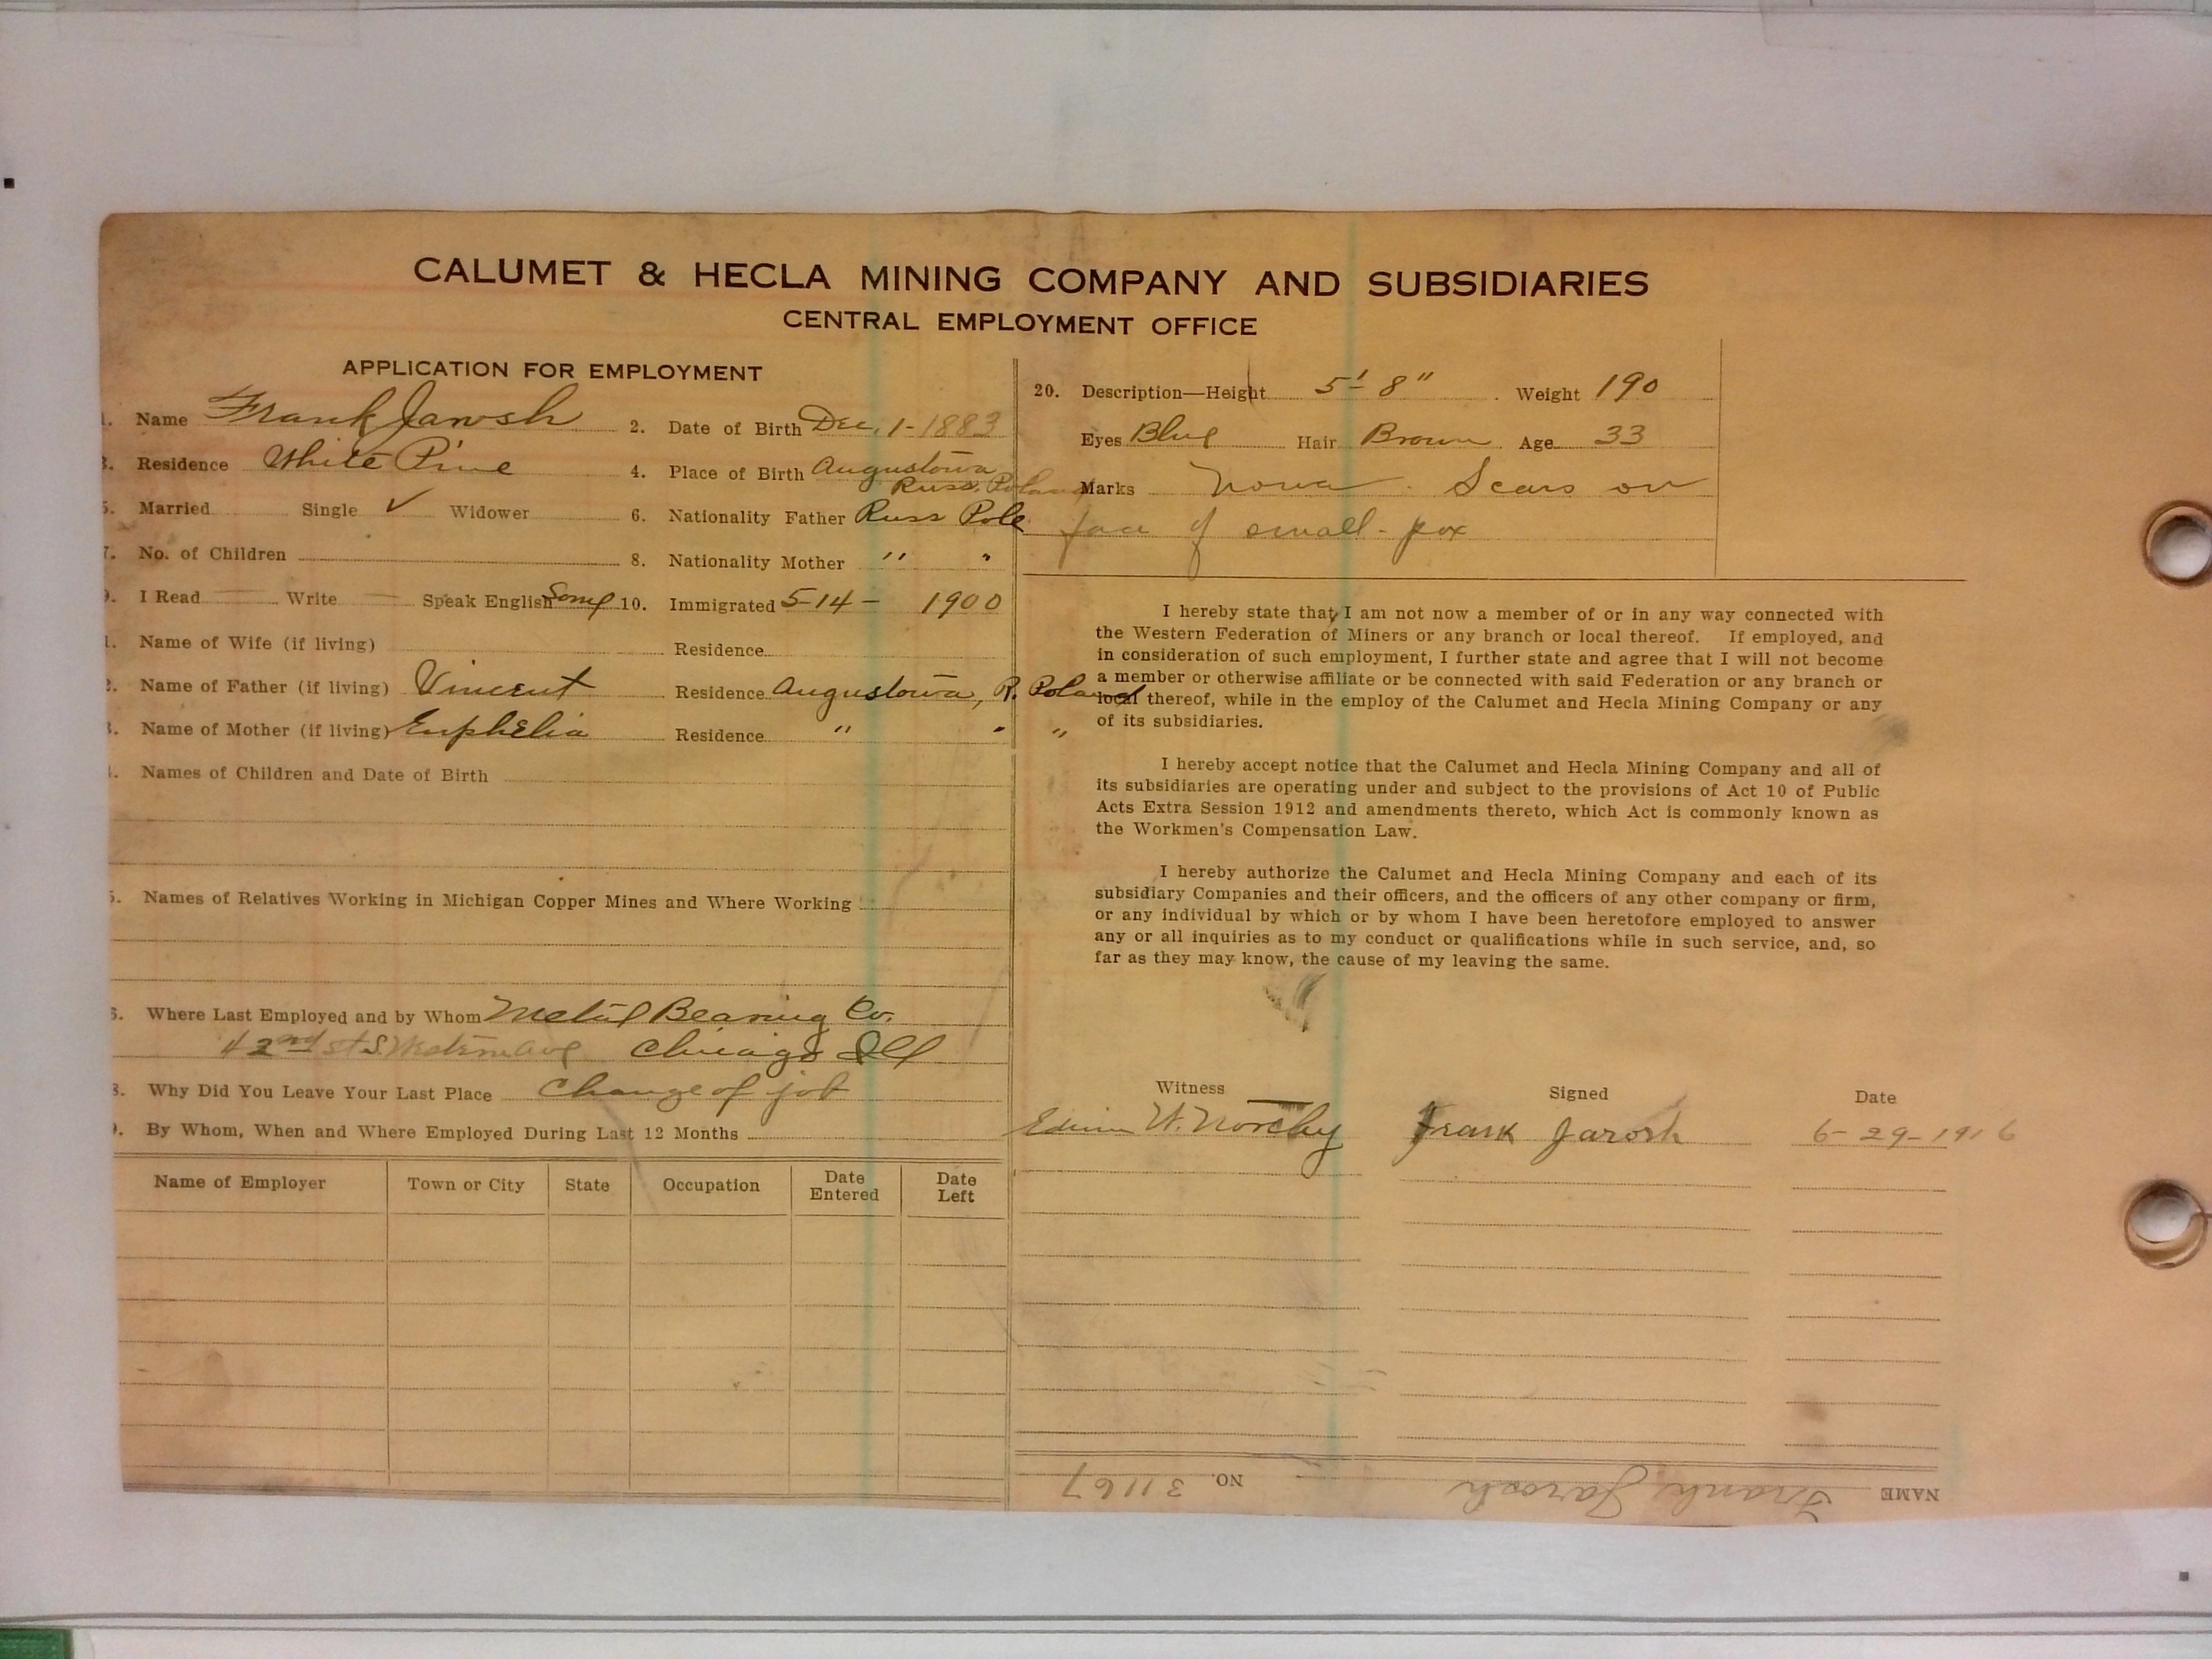 CALUMET & HECLA MINING COMPANY AND SUBSIDIARIES
CENTRAL EMPLOYMENT OFFICE
APPLICATION FOR EMPLOYMENT
1. Name Frank Jarosh 2. Date of Birth Dec. 1-1883
3. Residence White Pine 4. Place of Birth Augustowa
Russ. Poland
5. Married Single ✓ Widower 6. Nationality Father Russ Pole
7. No. of Children 8. Nationality Mother " "
9. I Read — Write — Speak English Some 10. Immigrated 5-14- 1900
1. Name of Wife (if living) Residence
2. Name of Father (if living) Vincent Residence Augustowa, R. Poland
3. Name of Mother (if living) Euphelia Residence " " "
4. Names of Children and Date of Birth
5. Names of Relatives Working in Michigan Copper Mines and Where Working
6. Where Last Employed and by Whom Metal Bearing Co.
42nd st S. Western Ave Chicago Ill
8. Why Did You Leave Your Last Place Change of job
9. By Whom, When and Where Employed During Last 12 Months
Name of Employer Town or City State Occupation Date Entered Date Left
20. Description—Height 5'- 8" Weight 190
Eyes Blue Hair Brown Age 33
Marks Scars on
face of small-pox
I hereby state that I am not now a member of or in any way connected with
the Western Federation of Miners or any branch or local thereof. If employed, and
in consideration of such employment, I further state and agree that I will not become
a member or otherwise affiliate or be connected with said Federation or any branch or
local thereof, while in the employ of the Calumet and Hecla Mining Company or any
of its subsidiaries.
I hereby accept notice that the Calumet and Hecla Mining Company and all of
its subsidiaries are operating under and subject to the provisions of Act 10 of Public
Acts Extra Session 1912 and amendments thereto, which Act is commonly known as
the Workmen's Compensation Law.
I hereby authorize the Calumet and Hecla Mining Company and each of its
subsidiary Companies and their officers, and the officers of any other company or firm,
or any individual by which or by whom I have been heretofore employed to answer
any or all inquiries as to my conduct or qualifications while in such service, and, so
far as they may know, the cause of my leaving the same.
Witness Signed Date
Edwin W. Frank Jarosh 6-29-1916
NAME Frank Jarosh NO. 31167